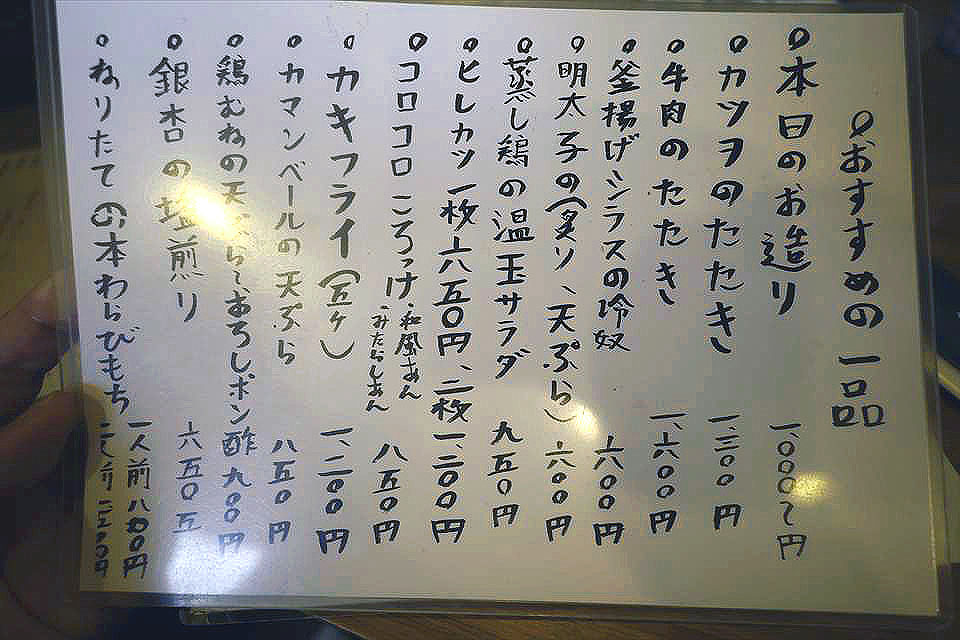 おすすめの一品
本日のお造り 一、〇〇〇〜円
カツヲのたたき 一、二〇〇円
牛肉のたたき 一、六〇〇円
釜揚げシラスの冷奴 六〇〇円
明太子の(炙り、天ぷら) 六〇〇円
蒸し鶏の温玉サラダ 九五〇円
ヒレカツ 一枚六五〇円、二枚一、二〇〇円
コロコロころっけ・和風あん
・みたらしあん 八五〇円
カキフライ(五ヶ) 一、二〇〇円
カマンベールの天ぷら 八五〇円
鶏むねの天ぷら、おろしポン酢 九〇〇円
銀杏の塩煎り 六五〇五
ねりたての本わらびもち 一人前八四〇円
二人前